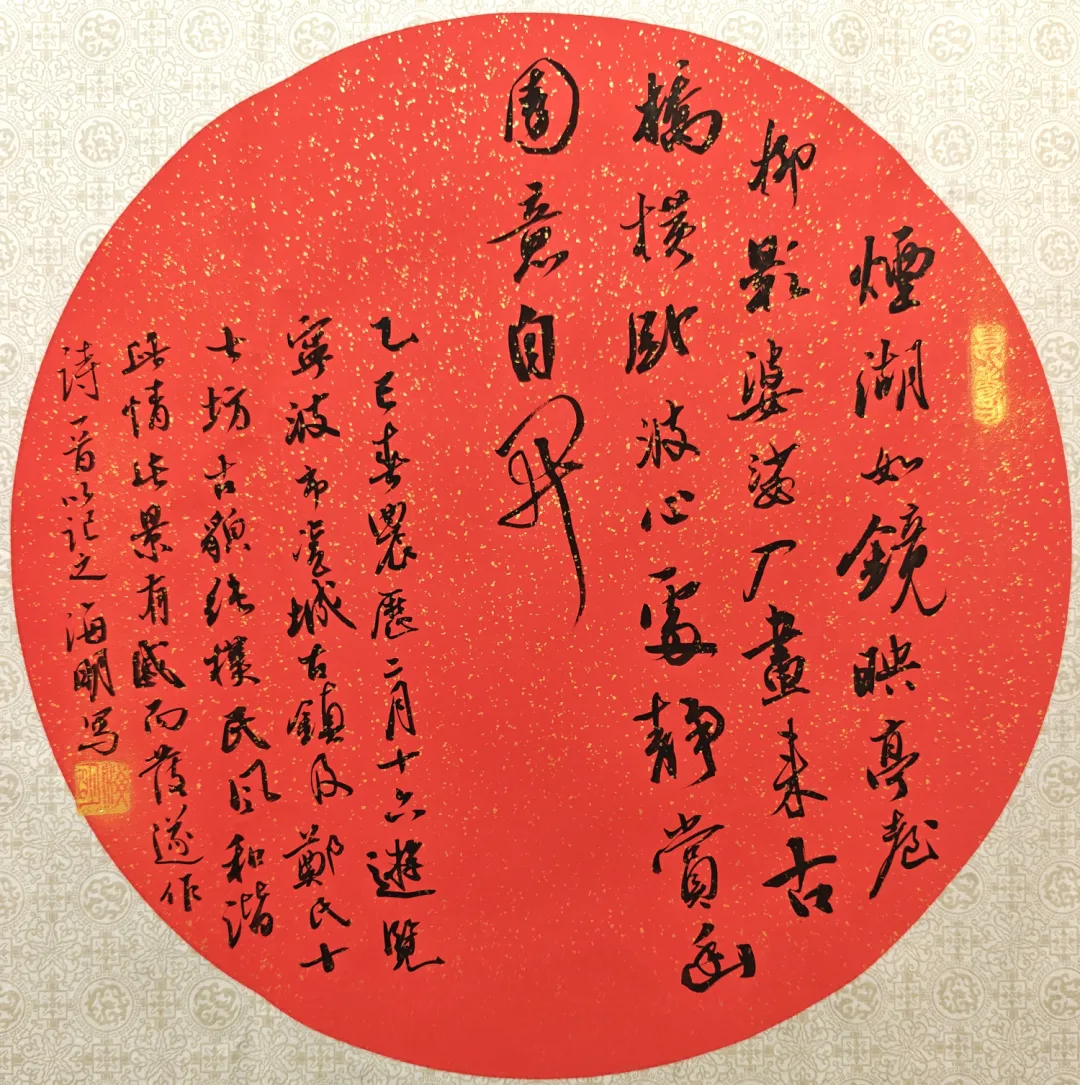 煙湖如鏡映亭臺
柳影婆娑入畫来古
橋横卧波心處静賞幽
園意自開
乙巳春農歷二月十六遊覽
寧波市慈城古鎮及鄭氏十
七坊古純樸民風和諧
此情此景有感而發遂作
詩一首以记之海明写